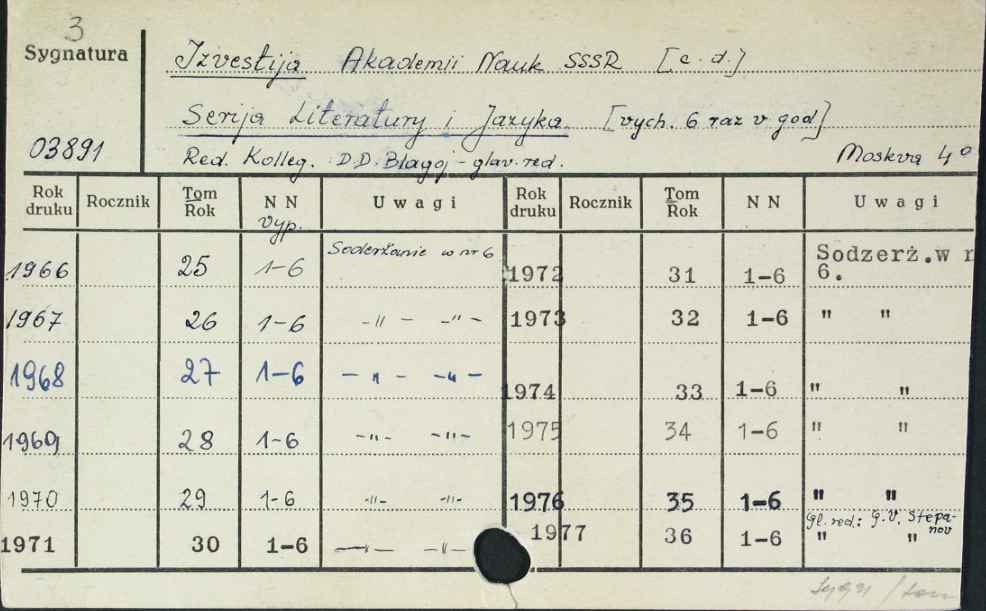 3
Sygnatura
Izvestija Akademii Nauk SSSR [c.d.]
Serija Literatury i Jazyka [vych. 6 raz v god]
03891
Red. Kolleg. D.D. Blagoj - glav. red. Moskva 4º
Rok druku Rocznik Tom Rok NN vyp. Uwagi Rok druku Rocznik Tom Rok NN Uwagi
1966 25 1-6 Soderžanie w nr 6 1972 31 1-6 Sodzerż.w n 6.
1967 26 1-6 -"- -"- 1973 32 1-6 " "
1968 27 1-6 -"- -"- 1974 33 1-6 " "
1969 28 1-6 -"- -"- 1975 34 1-6 " "
1970 29 1-6 -"- -"- 1976 35 1-6 " "
Gl. red.: G.V. Stepa-
nov
1971 30 1-6 -"- -"- 1977 36 1-6 " "